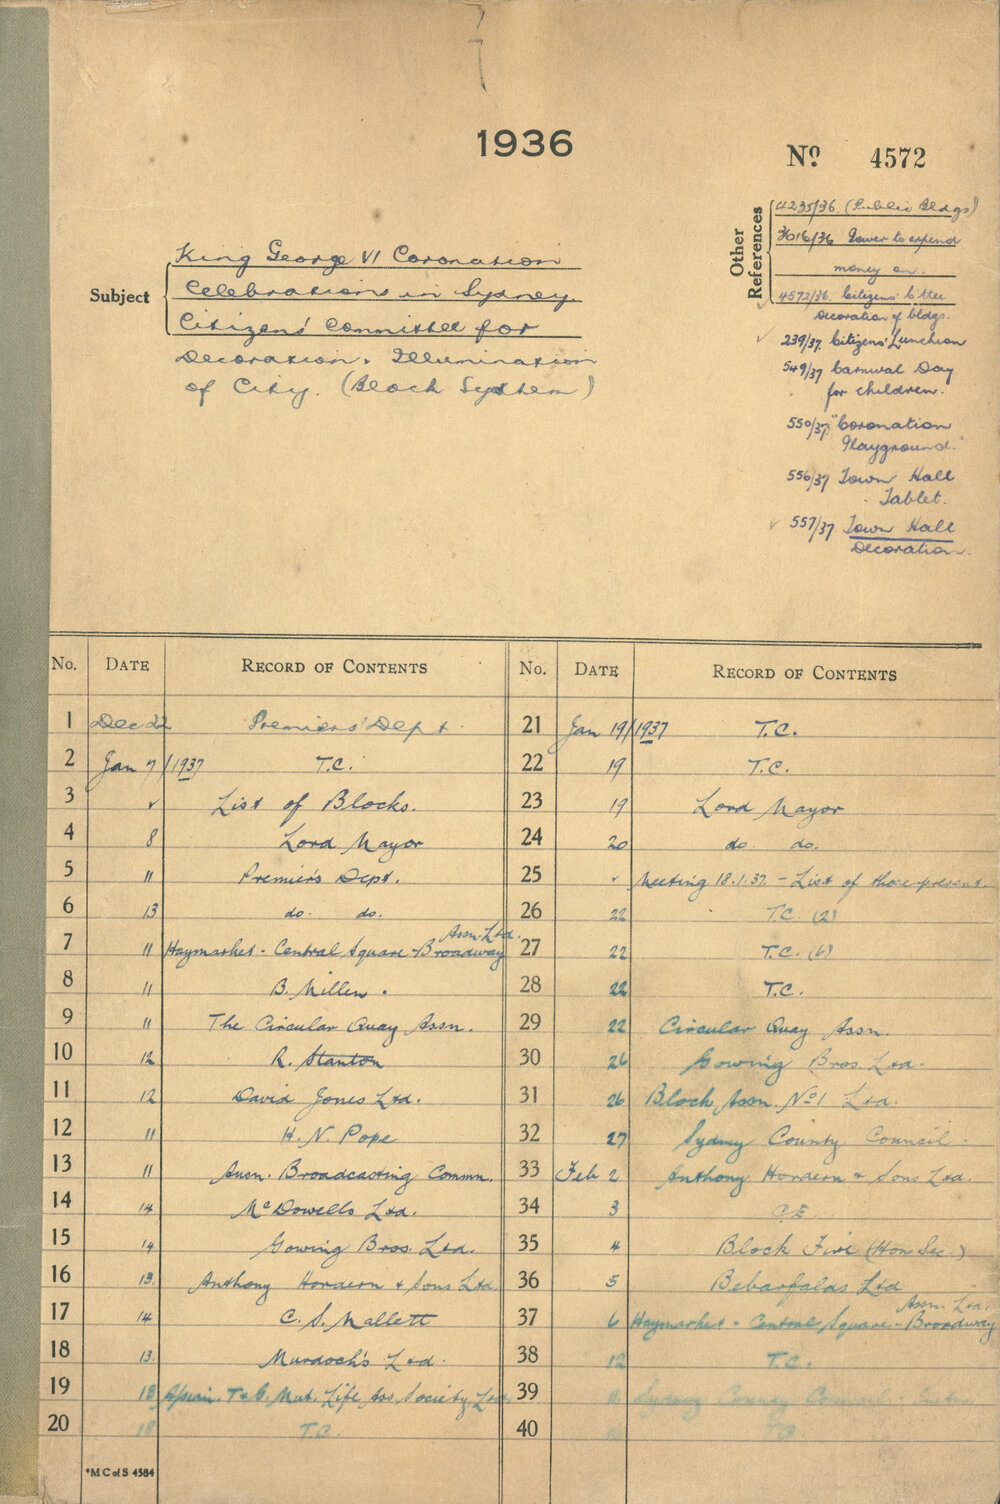 1936
Nº 4572
Other References
4235/36 (Public Bldgs)
3016/36 Power to expend
money on.
4572/36 Citizens' C'ttee
Decoration of bldgs.
239/37. Citizens' Luncheon
549/37 Carnival Day
for children.
550/37. "Coronation
Playground."
556/37 Town Hall
Tablet.
557/37 Town Hall
Decoration.
Subject
King George VI Coronation
Celebrations in Sydney.
Citizens' Committee for
Decoration & Illumination
of City. (Block System)
No. DATE RECORD OF CONTENTS
1 Dec 22 Premiers' Dept.
2 Jan 7/1937 T.C.
3 " List of Blocks.
4 8 Lord Mayor
5 11 Premier's Dept.
6 13 do. do.
7 11 Haymarket - Central Square - Broadway Assn. Ltd.
8 11 B. Millen.
9 11 The Circular Quay Assn.
10 12 R. Stanton
11 12 David Jones Ltd.
12 11 H. N. Pope
13 11 Ausn. Broadcasting Commn.
14 14 McDowells Ltd.
15 14 Gowing Bros. Ltd.
16 13. Anthony Hordern & Sons Ltd.
17 14 C. S. Mallett
18 13. Murdoch's Ltd.
19 18 T. & G. Mut. Life Ass. Society Ltd.
20 18 T.C.
No. DATE RECORD OF CONTENTS
21 Jan 19/1937 T.C.
22 19 T.C.
23 19 Lord Mayor
24 20 do. do.
25 " Meeting 18.1.37. - List of those present.
26 22 T.C. (2)
27 22 T.C. (6)
28 22 T.C.
29 22 Circular Quay Assn.
30 26 Gowing Bros. Ltd.
31 26 Block Assn. Nº1 Ltd.
32 27 Sydney County Council.
33 Feb 2 Anthony Hordern & Sons Ltd.
34 3 C.E.
35 4 Block Five (Hon Sec.)
36 5 Bebarfalds Ltd
37 6 Haymarket - Central Square - Broadway Assn. Ltd.
38 12 T.C.
39 11 Sydney County Council
40
*M C of S 4584